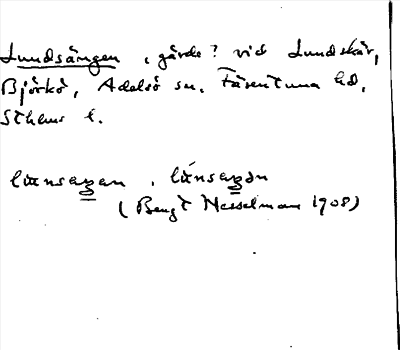 Lundsängen, gärde? vid Lundskär,
Björkö, Adelsö sn, Färentuna hd,
Sthlms l.
lünsaŋan, lúnsaŋən
(Bengt Hesselman 1908)